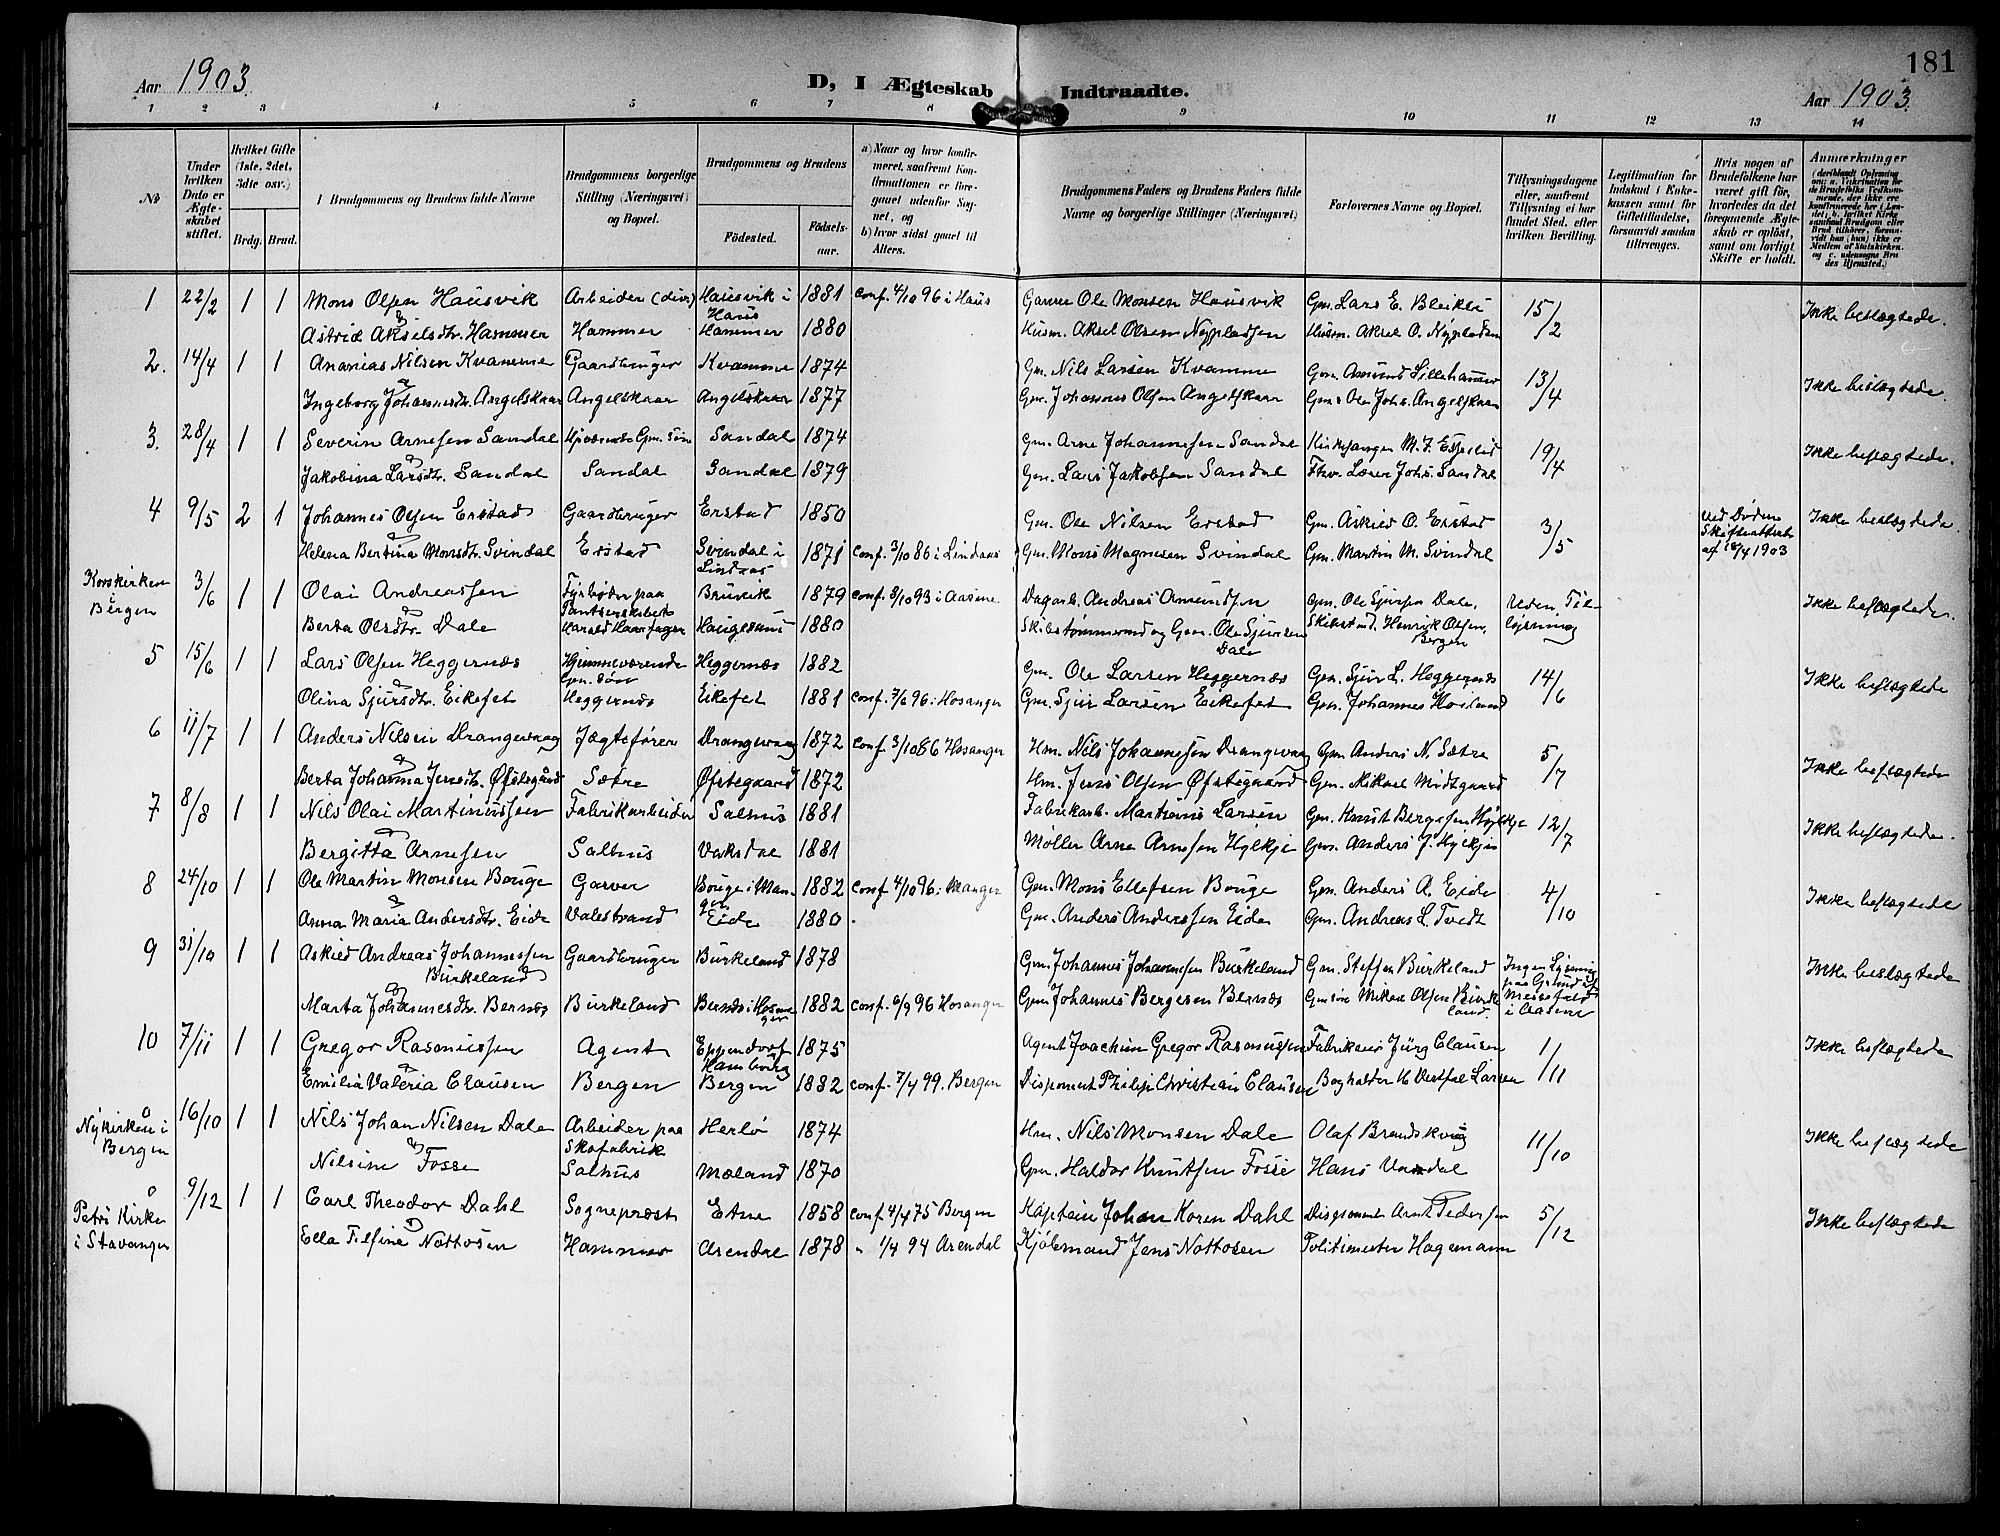 181
Aar 1903. D, I Ægteskab Indtraadte. Aar 1903.
1 2 3 4 5 6 7 8 9 10 11 12 13 14
No
Under hvilken Dato er Ægteskabet stiftet.
Hvilket Gifte (1ste, 2det, 3die osv.)
Brdg. Brud.
Brudgommens og Brudens fulde Navne
Brudgommens borgerlige Stilling (Næringsvei) og Bopæl.
Brudgommens og Brudens
Fødested.
Fødselsaar.
a) Naar og hvor konfirmeret, saafremt Konfirmationen er foregaaet udenfor Sognet, og
b) hvor sidst gaaet til Alters.
Brudgommens Faders og Brudens Faders fulde Navne og borgerlige Stillinger (Næringsvei)
Forlovernes Navne og Bopæl.
Tillysningsdagene eller, saafremt Tillysning ei har fundet Sted, efter hvilken Bevilling.
Legitimation for Indskud i Enkekassen samt for Giftetilladelse, forsaavidt saadan tiltrænges.
Hvis nogen af Brudefolkene har været gift før, hvorledes da det foregaaende Ægteskab er opløst, samt om lovligt Skifte er holdt.
Anmærkninger
1 22/2 1 1 Mons Olsen Hausvik Arbeider (div) Hausvik i Haus 1881 conf. 4/10 96 i Haus Gaardm Ole Monsen Hausvik Gm. Lars E. Bleiklie 15/2 Ikke beslægtede.
& Astrid Akselsdtr. Hammer Hammer Hammer 1880 Husm. Aksel Olsen Nypladsen Husm. Aksel O. Nypladsen
2. 14/4 1 1 Ananias Nilsen Kvamme Gaardbruger Kvamme 1874 Gm. Nils Larsen Kvamme Gm. Amund Lillehammer 13/4 Ikke beslægtede.
& Ingeborg Johannesdtr. Angelskaar Angelskaar Angelskaar 1877 Gm. Johannes Olsen Angelskaar Gm. Ole Johs. Angelskaar
3. 28/4 1 1 Severin Arnesen Sandal Hjværende Gm. Søn Sandal 1874 Gm. Arne Johannesen Sandal Kirkesanger M. J. 19/4 Ikke beslægtede.
& Jakobina Larsdtr. Sandal Sandal Sandal 1879 Gm. Lars Jakobsen Sandal Fhv. Lærer Johs. Sandal
4 9/5 2 1 Johannes Olsen Erstad Gaardbruger Erstad 1850 Gm. Ole Nilsen Erstad Gm. Askild O. Erstad 3/5 ved Døden Skifteattest af 18/4 1903 Ikke beslægtede.
& Helena Bertina Monsdtr. Svindal Erstad Svindal i Lindaas 1871 conf. 3/10 86 i Lindaas Gm. Mons Magnesen Svindal Gm. Martin M. Svindal
Korskirken i Bergen 3/6 1 1 Olai Andreassen Fyrbøder paa Pantserskibet Harald Haarfager Bruvik 1879 conf. 8/10 93 i Aasene Dagarb. Andreas Amundsen Gm. Ole Sjursen Dale. Uden Tillysning Ikke beslægtede.
& Berta Olsdtr. Dale Haugesund 1880 Skibstømmermd og Gm. Ole Sjursen Dale Skibstmd. Henrik Olsen, Bergen
5 15/6 1 1 Lars Olsen Heggernæs Hjemmeværende Gm. Søn 1882 Heggernæs Gm. Ole Larsen Heggernæs Gm. Sjur L. Heggernæs 14/6 Ikke beslægtede
& Olina Sjursdtr. Eikefet Heggernæs Eikefet 1881 conf. 7/6 96 i Hosanger Gm. Sjur Larsen Eikefet Gm. Johannes
6 11/7 1 1 Anders Nilsen Drangevaag Jægtefører Drangevaag 1872 conf. 3/10 86 Hosanger Hm. Nils Johannesen Drangevaag Gm. Anders N. Sætre 5/7 Ikke beslægtede
& Berta Johanna Jensdtr. Øfstegård Sætre Øfstegaard 1872 Hm. Jens Olsen Øfstegaard Gm. Mikael Midtgaard
7 8/8 1 1 Nils Olai Martinussen Fabrikarbeider Salhus 1881 Fabrikarb. Martinus Larsen Gm. Knut Bergesen Hylkje 12/7 Ikke beslægtede.
& Bergitta Arnesen Salhus Vaksdal 1881 Møller Arne Arnesen Hylkje Gm. Anders J. Hylkje
8 24/10 1 1 Ole Martin Monsen Bouge Garver Bouge i Manger 1882 conf. 4/10 96 i Manger Gm. Mons Ellefsen Bouge Gm. Anders A. Eide 4/10 Ikke beslægtede
& Anna Maria Andersdtr. Eide Valestrand Eide 1880 Gm. Anders Andersen Eide Gm. Andreas L. Tvedt
9 31/10 1 1 Askild Andreas Johannessen Burkeland Gaardbruger Burkeland 1878 Gm. Johannes Johannesen Burkeland Gm. Steffen Burkeland Ingen Lysning paa Grund af Messefald i Aasene Ikke beslægtede
& Marta Johannesdtr. Bernæs Burkeland Bernæs i Hosanger 1882 conf. 6/9 96 Hosanger Gm. Johannes Bergesen Bernæs Gmsøn Mikael Olsen Burkeland.
10 7/11 1 1 Gregor Rasmussen Agent Eppendorf Hamburg 1875 Agent Joachim Gregor Rasmussen Fabrikeier Jürg Clausen 1/11 Ikke beslægtede
& Emilia Valeria Clausen Bergen Bergen 1882 conf. 7/4 99. Bergen Disponent Philip Christian Clausen Bogholder Vestfal Larsen
Nykirken i Bergen 16/10 1 1 Nils Johan Nilsen Dale Arbeider paa Skofabrik Herlø 1874 Hm. Nils Monsen Dale Olaf Brandskoug 11/10 Ikke beslægtede
& Nilsine Fosse Salhus Mæland 1870 Gm. Haldor Knutsen Fosse Hans
Petri Kirke i Stavanger 9/12 1 1 Carl Theodor Dahl Sogneprest Etne 1858 conf 4/4 75 Bergen Kaptein Johan Koren Dahl Disponent Arnt Pedersen 5/12 Ikke beslægtede
& Ella Tilfine Nottosen Hammer Arendal 1878 " 1/4 94 Arendal Kjøbmand Jens Nottosen Politimester Hagemann